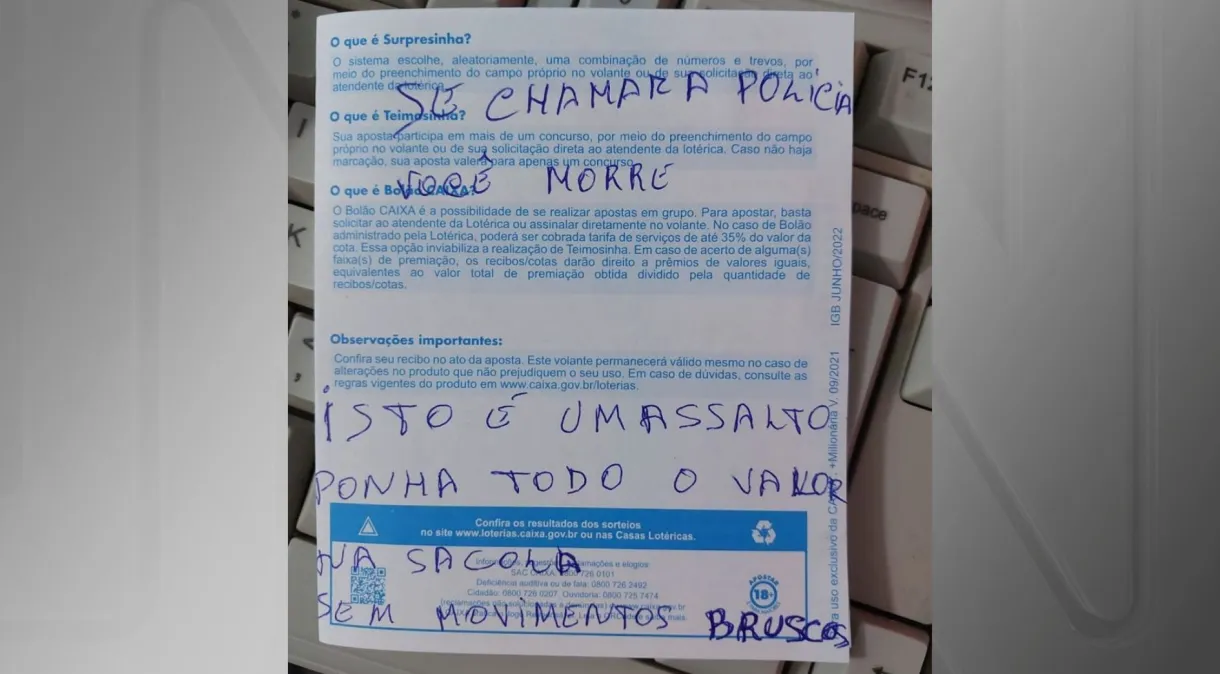 O que é Surpresinha?
O sistema escolhe, aleatoriamente, uma combinação de números e trevos, por
meio do preenchimento do campo próprio no volante ou de sua solicitação direta ao
atendente da lotérica.
SE CHAMAR A POLICIA
O que é Teimosinha?
Sua aposta participa em mais de um concurso, por meio do preenchimento do campo
próprio no volante ou de sua solicitação direta ao atendente da lotérica. Caso não haja
marcação, sua aposta valerá para apenas um concurso.
VOCÊ MORRE
O que é Bolão CAIXA?
O Bolão CAIXA é a possibilidade de se realizar apostas em grupo. Para apostar, basta
solicitar ao atendente da Lotérica ou assinalar diretamente no volante. No caso de Bolão
administrado pela Lotérica, poderá ser cobrada tarifa de serviços de até 35% do valor da
cota. Essa opção inviabiliza a realização de Teimosinha. Em caso de acerto de alguma(s)
faixa(s) de premiação, os recibos/cotas darão direito a prêmios de valores iguais,
equivalentes ao valor total de premiação obtida dividido pela quantidade de
recibos/cotas.
Observações importantes:
Confira seu recibo no ato da aposta. Este volante permanecerá válido mesmo no caso de
alterações no produto que não prejudiquem o seu uso. Em caso de dúvidas, consulte as
regras vigentes do produto em www.caixa.gov.br/loterias.
ISTO É UM ASSALTO
PONHA TODO O VALOR
Confira os resultados dos sorteios
no site www.loterias.caixa.gov.br ou nas Casas Lotéricas.
NA SACOLA
SAC CAIXA: 0800 726 0101
Deficiência auditiva ou de fala: 0800 726 2492
Cidadão: 0800 726 0207, Ouvidoria: 0800 725 7474
SEM MOVIMENTOS BRUSCOS
APOSTAR
18+
uso exclusivo da +Milionária V. 09/2021 IGB JUNHO/2022
F12
pace
K